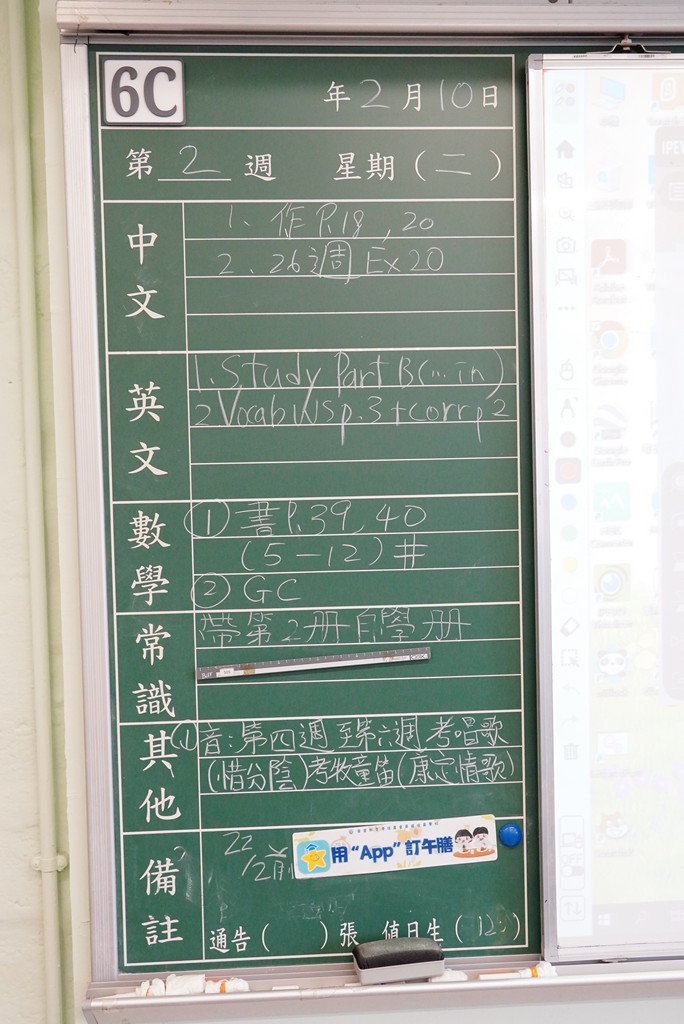 6C
年2月10日
第2週 星期(二)
中文
1、作P.18,20
2、26週 Ex 20
英文
1. Study Part B(...in)
2 Vocab WS p.3 + corr p2
數學
① 書P.39,40
(5-12)#
② GC
常識
帶第2冊自學冊
其他
① 音:第四週至第六週考唱歌
(惜分陰)考牧童笛(康定情歌)
備註
22/2前
用“App”訂午膳
通告( )張 值日生(12 )